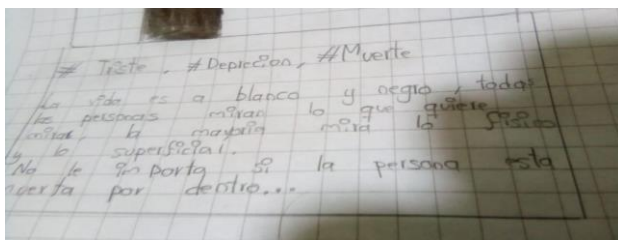 # Triste, #Deprecion, #Muerte
La vida es a blanco y negro, todas
las personas miran lo que quiere
mirar, la mayoria mira lo fisico
y lo superficial.
No le importa si la persona esta
muerta por dentro...